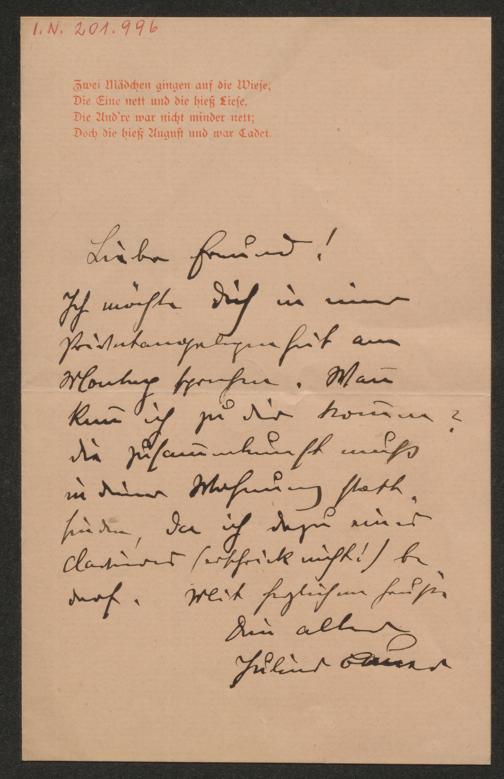 I.N. 201.996
Zwei Mädchen gingen auf die Wiese;
Die Eine nett und die hieß Liese,
Die And're war nicht minder nett;
Doch die hieß August und war Cadet.
Lieber Freund!
Ich möchte Dich in einer
Privatangelegenheit am
Montag sprechen. Wann
kann ich zu dir kommen?
die Zusammenkunft muß
in deiner Wohnung statt-
finden, da ich dazu eines
Clavieres (erschrick nicht!) be
darf. Mit herzlichem Gruße
Dein alter
Julius